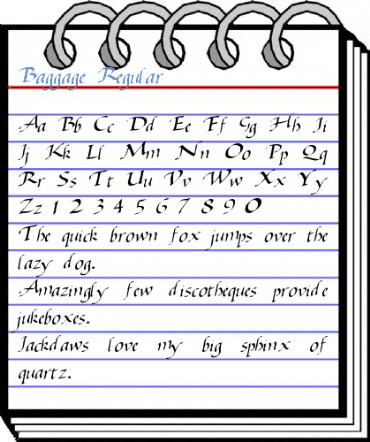 Baggage Regular
Aa Bb Cc Dd Ee Ff Gg Hh Ii
Jj Kk Ll Mm Nn Oo Pp Qq
Rr Ss Tt Uu Vv Ww Xx Yy
Zz 1 2 3 4 5 6 7 8 9 0
The quick brown fox jumps over the
lazy dog.
Amazingly few discotheques provide
jukeboxes.
Jackdaws love my big sphinx of
quartz.